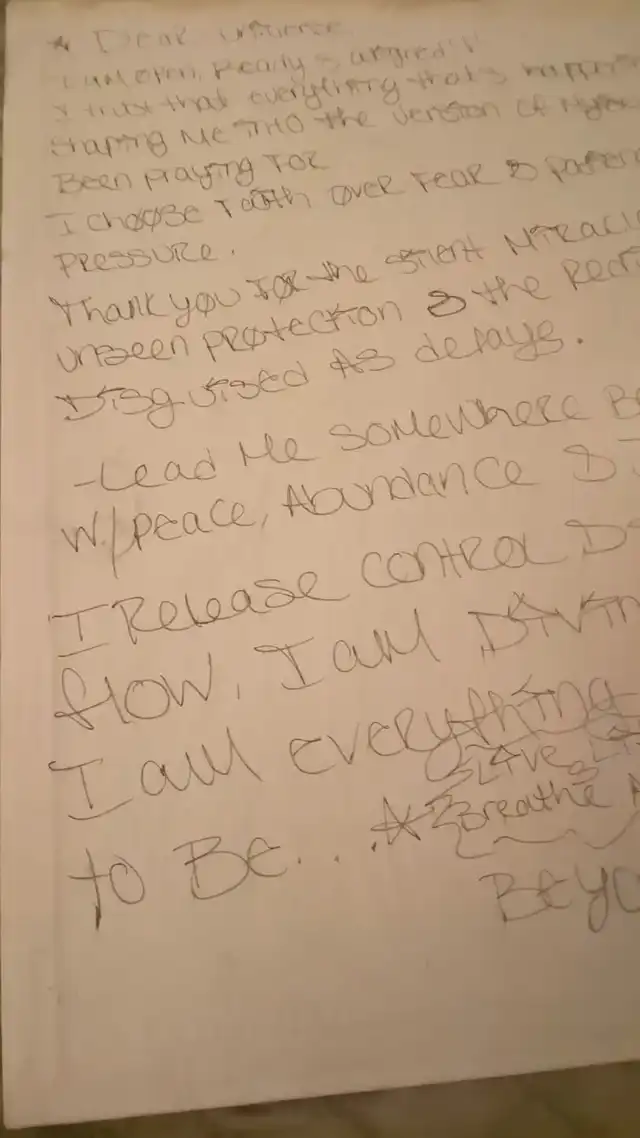 * Dear universe
I am open, Ready & aligned
I trust that everything that's
shaping Me INTO the version of
Been praying For
I choose Faith over Fear &
PRESSURE.
Thank you For the silent
unseen protection & the
Disguised As delays.
-Lead Me somewhere
W/peace, Abundance &
I Release control
flow, I am
I am everything
Live
to Be.... *
Breathe